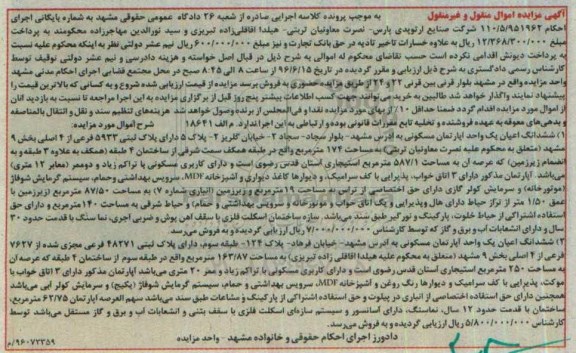 آگهی مزایده اموال منقول و غیرمنقول
به موجب پرونده کلاسه اجرایی صادره از شعبه ۲۶ دادگاه عمومی حقوقی مشهد به شماره بایگانی اجرای
احکام ۱۱۰/۵/۹۵۱۹۶۲ شرکت صنایع ارتوپدی پارس- نصرت معاونیان تربتی- هیلدا آقافلی‌زاده تبریزی و سید نورالدین مهاجرزاده محکومند به پرداخت
مبلغ ۱۲/۳۶۸/۳۰۰/۰۰۰ ریال به علاوه خسارات تاخیر تادیه در حق بانک تجارت و نیز مبلغ ۶۰۰/۰۰۰/۰۰۰ ریال نیم عشر دولتی نظر به اینکه محکوم علیه نسبت
به پرداخت دیونش اقدامی نکرده است حسب تقاضای محکوم له اموالی به شرح ذیل در قبال اصل خواسته و هزینه دادرسی و نیم عشر دولتی توقیف توسط
کارشناس رسمی دادگستری به شرح ذیل ارزیابی و مقرر گردیده در تاریخ ۹۶/۶/۱۵ از ساعت ۸ الی ۸:۴۵ صبح در محل مجتمع قضایی اجرای احکام مدنی مشهد
واحد مزایده واقع در مشهد بلوار قرنی بین قرنی ۲۲ و ۲۴ از طریق مزایده حضوری به فروش برسد مزایده از قیمت ارزیابی شده شروع و به کسانی که بالاترین قیمت را
پیشنهاد نمایند واگذار خواهد شد طالبین به خرید می‌توانند جهت کسب اطلاعات بیشتر پنج روز قبل از برگزاری مزایده به این اجرا مراجعه تا نسبت به بازدید آنان
از اموال مورد مزایده اقدام گردد ضمنا حداقل ۱۰٪ از بهای مورد مزایده نقدا و فی‌المجلس از برنده وصول خواهد شد. هزینه‌های تنظیم سند و نقل و انتقال بالمناصفه
و بدهی‌های معوقه به عهده فروشنده و تخلیه تابع مقررات قانونی بوده و ارتباطی به این اجرا ندارد. م الف ۱۸۶۴۱ شرح اموال مورد مزایده:
۱) ششدانگ اعیان یک واحد آپارتمان مسکونی به آدرس مشهد- بلوار سجاد- سجاد ۲ - خیابان گلریز ۲- پلاک ۵ دارای پلاک ثبتی ۵۹۲۳ فرعی از ۴ اصلی بخش ۹
مشهد (متعلق به محکوم علیه نصرت معاونیان تربتی) به مساحت ۱۷۴ مترمربع واقع در طبقه همکف سمت شرقی از ساختمان ۴ طبقه (همکف به علاوه ۳ طبقه و به
انضمام زیرزمین) که عرصه آن به مساحت ۵۸۷/۱ مترمربع استیجاری آستان قدس رضوی است و دارای کاربری مسکونی با تراکم زیاد و دوممر (معابر ۱۲ متری)
می‌باشد. آپارتمان مذکور دارای ۳ اتاق خواب، پذیرایی با کف سرامیک، و دیوارها کاغذ دیواری و آشپزخانه MDF، سرویس بهداشتی و حمام، سیستم گرمایش شوفاژ
(موتورخانه) و سرمایش کولر گازی دارای حق اختصاصی از تراس به مساحت ۱۹ مترمربع و زیرزمین (انباری شماره ۷) به مساحت ۸۷/۵۰ مترمربع (زیرزمین با
عمق ۱/۵۰ متر از تراز حیاط دارای هال و پذیرایی و یک اتاق خواب و موتورخانه و سرویس بهداشتی و حمام) و حیاط شرقی به مساحت ۱۴۰ مترمربع و دارای حق
استفاده اشتراکی از حیاط خلوت، پارکینگ و نورگیر طبق سند می‌باشد. سازه ساختمان اسکلت فلزی با سقف آهن پوش و ضربی آجری، نما سنگ با قدمت حدود ۳۰
سال و دارای انشعابات آب و برق و گاز که توسط کارشناس ۷/۰۰۰/۰۰۰/۰۰۰ ریال ارزیابی گردیده و به فروش می‌رسد.
۲) ششدانگ اعیان یک واحد آپارتمان مسکونی به آدرس مشهد- خیابان فرهاد- پلاک ۱۲۴- طبقه سوم، دارای پلاک ثبتی ۴۸۲۷۱ فرعی مجزی شده از ۷۶۲۷
فرعی از ۴ اصلی بخش ۹ مشهد (متعلق به محکوم علیه هیلدا آقافلی زاده تبریزی) به مساحت ۱۶۳/۸۷ مترمربع واقع در طبقه سوم از ساختمان ۴ طبقه که عرصه آن
به مساحت ۲۵۰ مترمربع استیجاری آستان قدس رضوی است و دارای کاربری مسکونی با تراکم زیاد و معبر ۲۰ متری می‌باشد آپارتمان مذکور دارای ۳ اتاق خواب با
موکت، پذیرایی با کف سرامیک و دیوارها رنگ روغن و آشپزخانه MDF، سرویس بهداشتی و حمام، سیستم گرمایش شوفاژ (پکیج) و سرمایش کولر آبی می‌باشد
همچنین دارای حق استفاده اختصاصی از انباری در پیلوت و حق استفاده اشتراکی از پارکینگ و مشاعات طبق سند می‌باشد سهم العرصه آپارتمان ۶۳/۷۵ مترمربع،
ساختمان با قدمت حدود ۱۲ سال، نماسنگ، دارای آسانسور و سیستم سازه‌ای اسکلت فلزی با سقف بتنی و انشعابات آب و برق و گاز مستقل می‌باشد توسط
کارشناس ۵/۸۰۰/۰۰۰/۰۰۰ ریال ارزیابی گردیده و به فروش می‌رسد.
دادورز اجرای احکام حقوقی و خانواده مشهد - واحد مزایده
۹۶۰۷۲۳۵۹/م